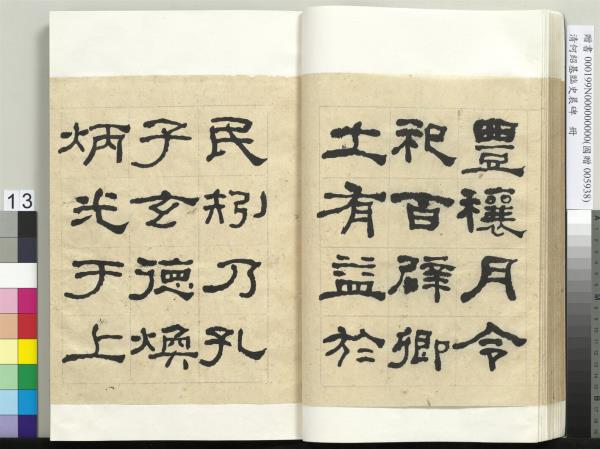 豐穰月令
祀百辟卿
士有益於
民矧乃孔
子玄德煥
炳光于上
贈書 000199N000000000(國贈 005938)
清何紹基臨史晨碑 冊
13